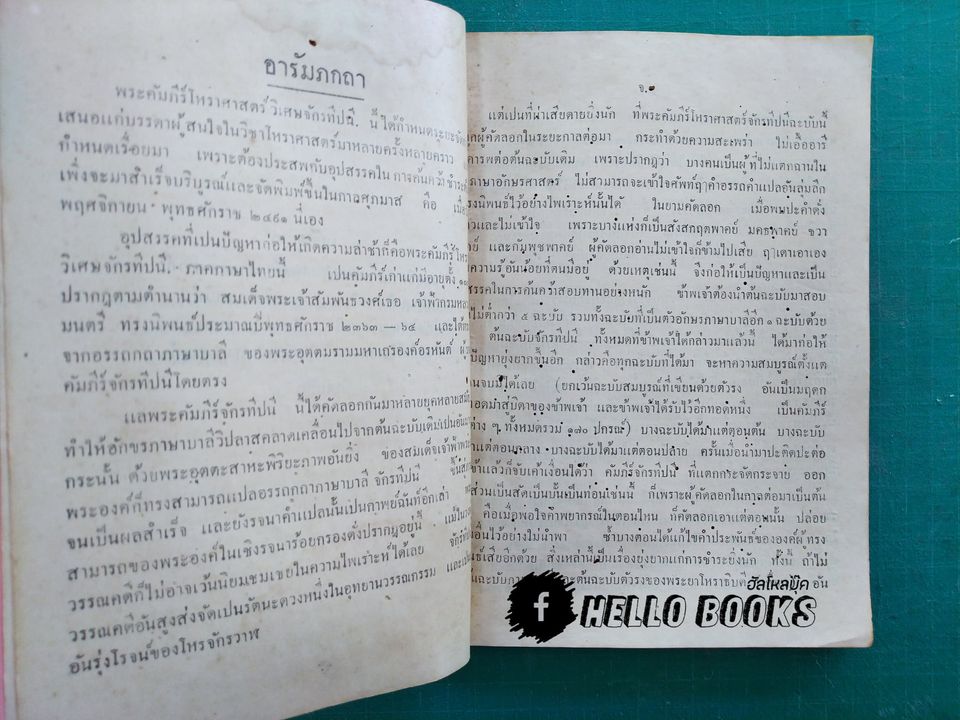 อารัมภกถา
พระคัมภีร์โหราศาสตร์วิเศษจักรทีปนี. นี้ ได้กำหนดระยะจัด
เสนอแก่บรรดาผู้สนใจในวิชาโหราศาสตร์มาหลายครั้งหลายคราว
กำหนดเรื่อยมา เพราะต้องประสพกับอุปสรรคใน การค้นคว้าชำระ
เพิ่งจะมาสำเร็จบริบูรณ์และจัดพิมพ์ขึ้นในกาลศุภมาส คือ เมื่อ
พฤศจิกายน พุทธศักราช ๒๔๙๑ นี่เอง
อุปสรรคที่เปนปัญหาก่อให้เกิดความล่าช้าก็คือพระคัมภีร์โหร
วิเศษจักรทีปนี. ภาคภาษาไทยนี้ เปนคัมภีร์เก่าแก่มีอายุตั้ง
ปรากฏตามตำนานว่า สมเด็จพระเจ้าสัมพันธวงศ์เธอ เจ้าฟ้ากรมหลวง
มนตรี ทรงนิพนธ์ประมาณปีพุทธศักราช ๒๓๖๓ — ๖๔ และได้
จากอรรถกถาภาษาบาลี ของพระอุตตมรามมหาเถรองค์อรหันต์ ผู้
คัมภีร์จักรทีปนีโดยตรง
แลพระคัมภีร์จักรทีปนี นี้ได้คัดลอกกันมาหลายยุคหลายสมัย
ทำให้อักขรภาษาบาลีวิปลาสคลาดเคลื่อนไปจากต้นฉะบับเดิมเปนอันมาก
กระนั้น ด้วยพระอุตตะสาหะพิริยะภาพอันยิ่ง ของสมเด็จเจ้าฟ้า
พระองค์ก็ทรงสามารถแปลอรรถกถาภาษาบาลี จักรทีปนี
จนเป็นผลสำเร็จ และยังรจนาคำแปลนั้นเปนกาพย์ฉันท์อีกเล่า
สามารถของพระองค์ในเชิงรจนาร้อยกรองดั่งปรากฎอยู่นี้ แม้ใน
วรรณคดีก็ไม่อาจเว้นนิยมชมเชยในความไพเราะห์ได้เลย จักรทีปนี
วรรณคดีอันสูงส่งจัดเปนรัตนะดวงหนึ่งในอุทยานวรรณกรรม และเปน
อันรุ่งโรจน์ของโหรจักรวาฬ
จ.
แต่เปนที่น่าเสียดายยิ่งนัก ที่พระคัมภีร์โหราศาสตร์จักรทีปนีฉะบับนี้
ผู้คัดลอกในระยะกาลต่อมา กระทำด้วยความสะเพร่า ไม่เอื้ออารี
การพต่อต้นฉะบับเดิม เพราะปรากฏว่า บางคนเป็นผู้ที่ไม่แตกฉานใน
ภาษาอักษรศาสตร์ ไม่สามารถจะเข้าใจศัพท์ฤๅคำอรรถคำแปลอันลุ่มลึก
ทรงนิพนธ์ไว้อย่างไพเราะห์นั้นได้ ในยามคัดลอก เมื่อพบปะคำดั่ง
และไม่เข้าใจ เพราะบางแห่งก็เป็นสังสกฤตพากย์ มคธพากย์ ชวา
และกัมพุชพากย์ ผู้คัดลอกอ่านไม่เข้าใจก็ข้ามไปเสีย ฤๅเดาเอาเอง
ความรู้อันน้อยที่ตนมีอยู่ ด้วยเหตุเช่นนี้ จึงก่อให้เป็นปัญหาและเป็น
สรรคในการค้นคว้าสอบทานอย่างหนัก ข้าพเจ้าต้องนำต้นฉะบับมาสอบ
ไม่ต่ำกว่า ๕ ฉะบับ รวมทั้งฉะบับที่เป็นตัวอักษรภาษาบาลีอีก ๑ ฉะบับด้วย
ต้นฉะบับจักรทีปนี ทั้งหมดที่ข้าพเจ้าได้กล่าวมาแล้วนี้ ได้มาก่อให้
ปัญหายุ่งยากขึ้นอีก กล่าวคือทุกฉะบับที่ได้มา จะหาความสมบูรณ์ตั้งแต่
จนจบมิได้เลย (ยกเว้นฉะบับสมบูรณ์ที่เขียนด้วยตัวรง อันเป็นมฤดก
ทอดมาสู่บิดาของข้าพเจ้า และข้าพเจ้าได้รับไว้อีกทอดหนึ่ง เป็นคัมภีร์
ต่าง ๆ ทั้งหมดรวม ๑๗๐ ปกรณ์) บางฉะบับได้มาแต่ตอนต้น บางฉะบับ
มาแต่ตอนกลาง บางฉะบับได้มาแต่ตอนปลาย ครั้นเมื่อนำมาปะติดปะต่อ
เข้าแล้วก็จับเค้าเงื่อนได้ว่า คัมภีร์จักรทีปนี ที่แตกกระจัดกระจาย ออก
ส่วนเป็นสัดเป็นบั้นเป็นท่อนเช่นนี้ ก็เพราะผู้คัดลอกในกาลต่อมาเป็นต้น
คือเมื่อพอใจคำพยากรณ์ในตอนไหน ก็คัดลอกเอาแต่ตอนนั้น ปล่อย
อื่นไว้อย่างไม่นำพา ซ้ำบางตอนได้แก้ไขคำประพันธ์ขององค์ผู้ ทรง
เสียอีกด้วย สิ่งเหล่านี้เป็นเรื่องยุ่งยากแก่การชำระยิ่งนัก ทั้งนี้ ถ้าไม่
ต้นฉะบับตัวรงของพระยาโหราธิบดี อัน
ฮัลโหลบุ๊ค
HELLO BOOKS